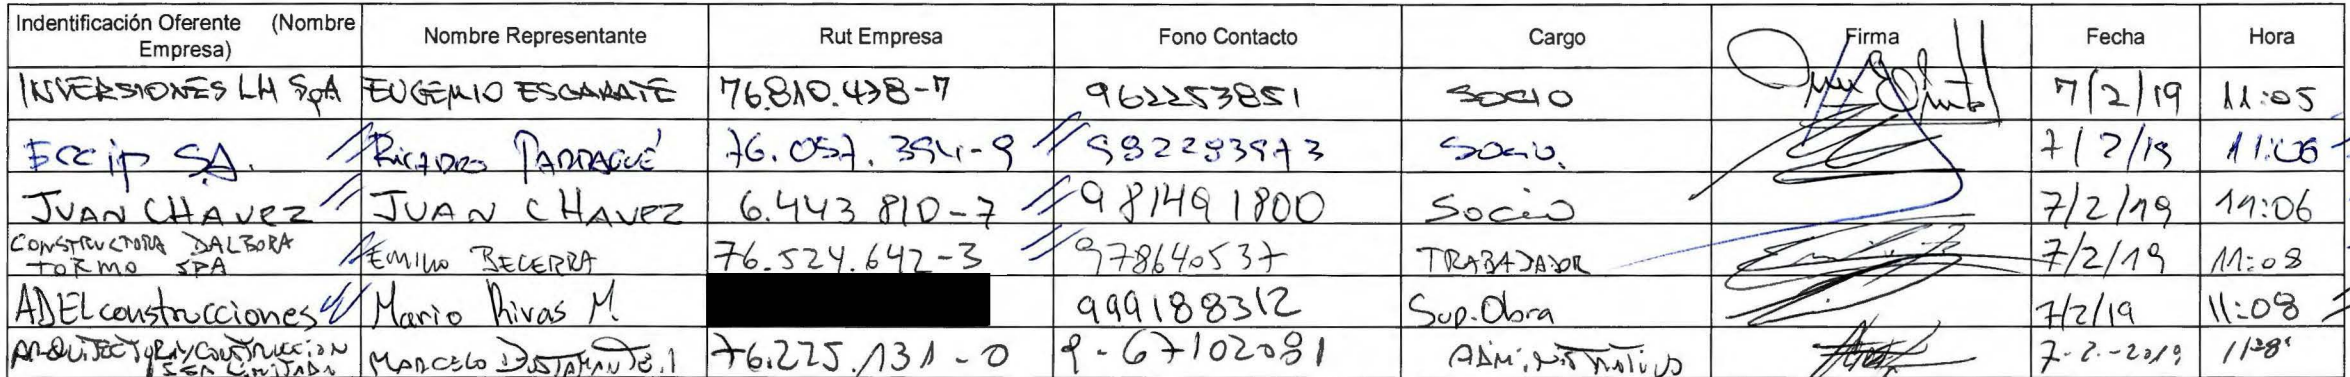 Indentificación Oferente (Nombre Empresa) Nombre Representante Rut Empresa Fono Contacto Cargo Firma Fecha Hora
INVERSIONES LH SpA EUGENIO ESCARATE 76.810.438-7 962253851 SOCIO 7/2/19 11:05
Eccip SA. RICADRO PARRAGUÉ 76.057.394-9 992293973 Socio. 7/2/19 11:06
JUAN CHAVEZ JUAN CHAVEZ 6.443 810-7 981491800 Socio 7/2/19 11:06
CONSTRUCTORA DALBORA TORMO SPA EMILIO BECERRA 76.524.642-3 978640537 TRABAJADOR 7/2/19 11:08
ADEL construcciones Mario Rivas M. 999188312 Sup. Obra 7/2/19 11:08
ARQUITECTURA Y CONSTRUCCION LIMITADA MARCELO 76.225.131-0 9-67102081 ADMINISTRATIVO 7-2-2019